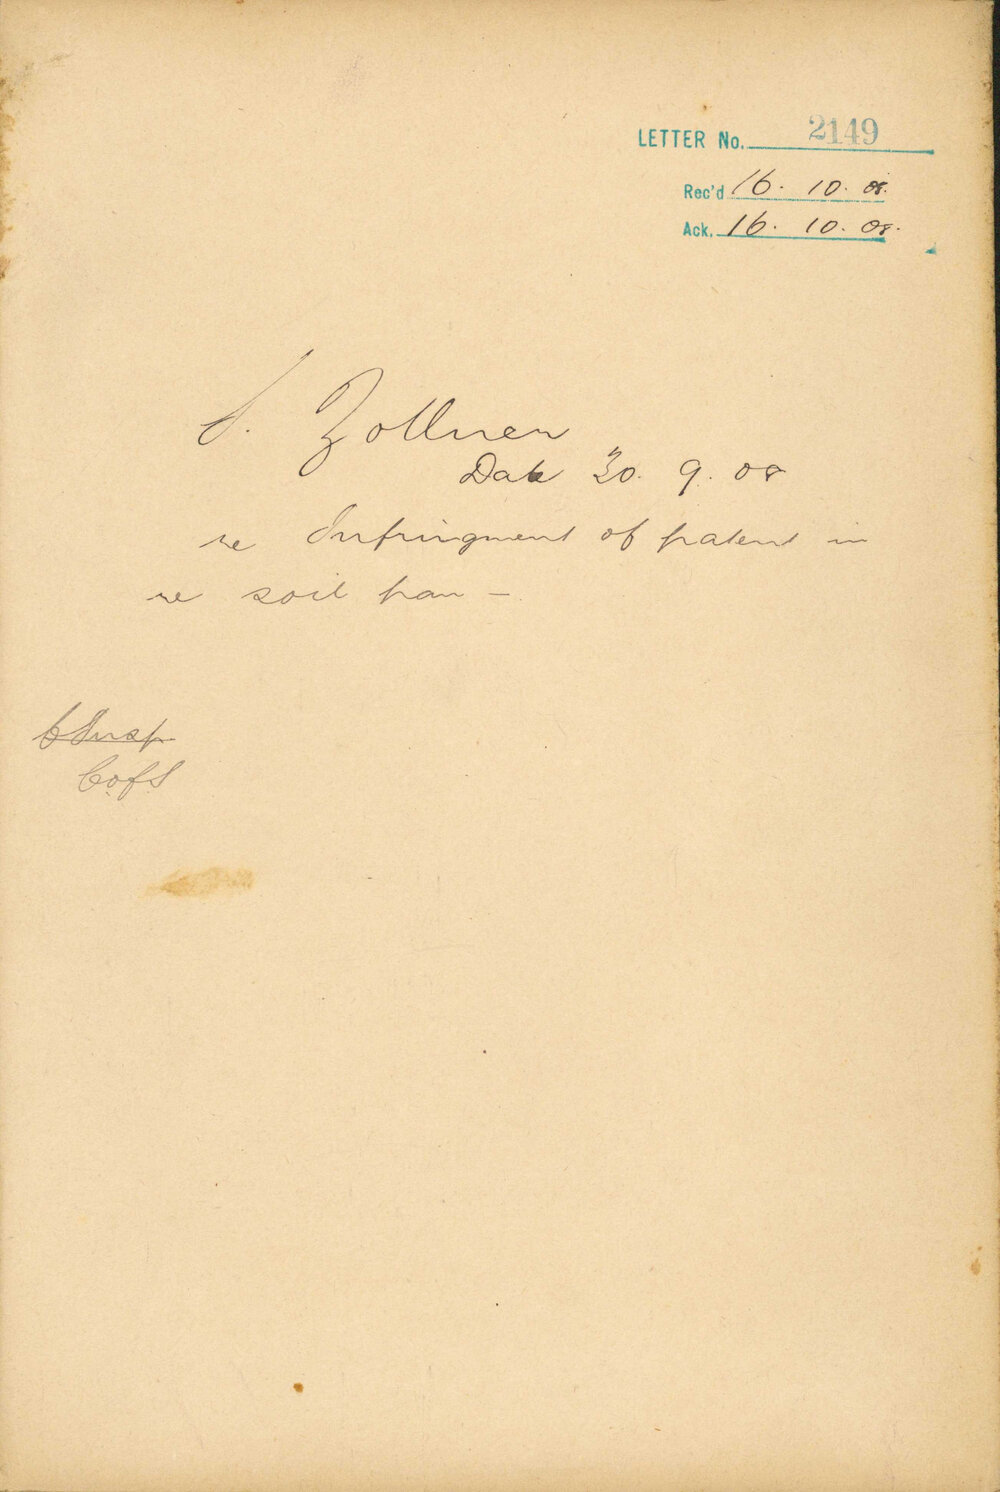 LETTER No. 2149
Rec'd 16. 10. 08.
Ack. 16. 10. 08.
S. Zollner
Date 30. 9. 08
re Infringment of patent in
re soil pan –
C Insp
C.ofS